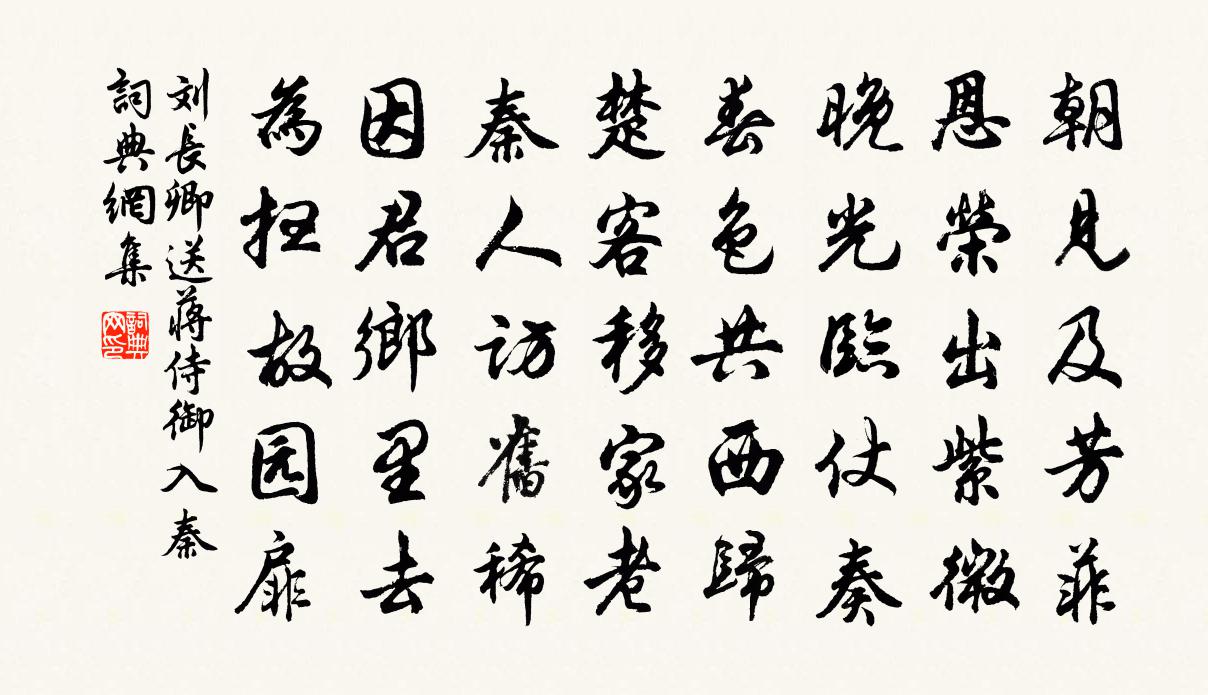 朝見及芳菲
恩榮出紫微
晚光臨仗奏
春色共西歸
楚客移家老
秦人訪舊稀
因君鄉里去
為掃故园扉
刘長卿送蔣侍御入秦
詞典網集
詞典网印